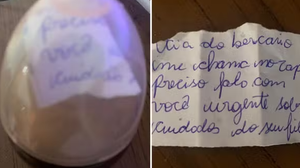 preciso
você
cuidados
Tia do berçario
me chama no zap
preciso falo com
você urgente sob
cuidados do seu fil